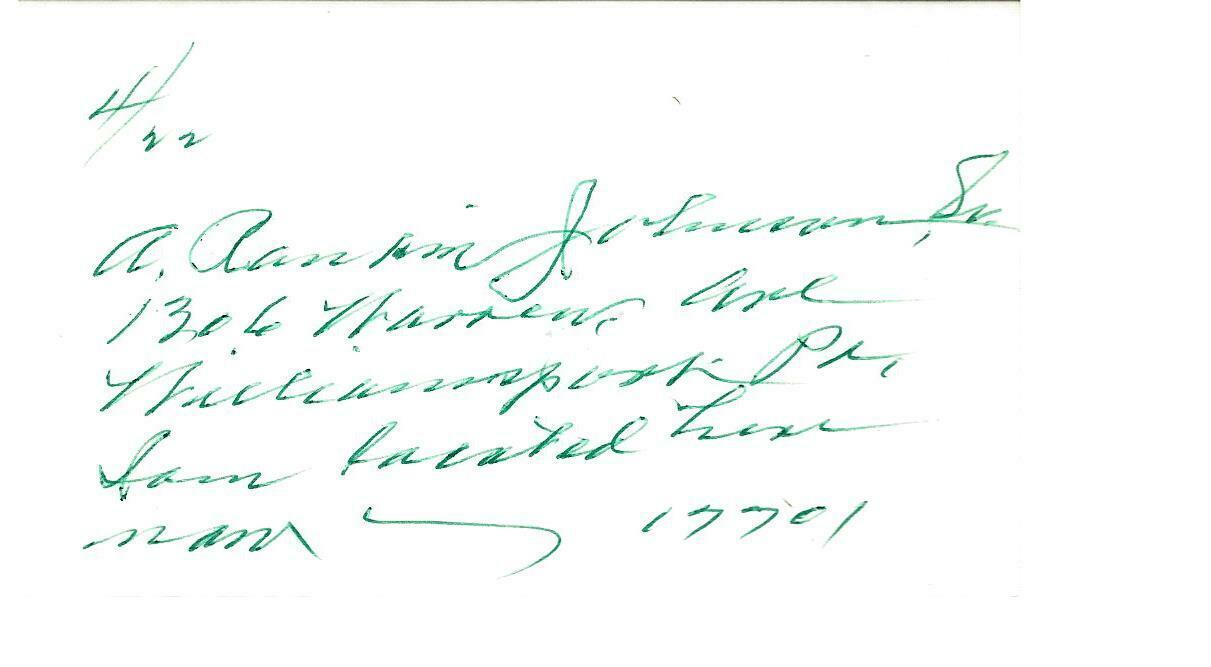 4/22
A. Rankin Johnson, Sr.
1306 Warren, Ave
Williamsport Pa,
I am located here
now 17701